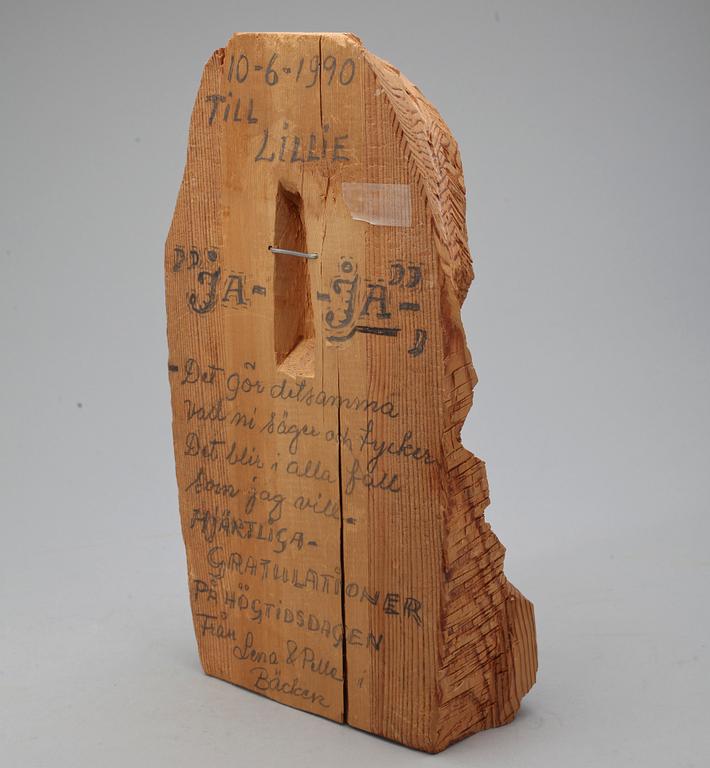 10-6-1990
TiLL
LiLLiE
"JA- -JA"-
- Det gör detsamma
vad ni säger och tycker
Det blir i alla fall
som jag vill -
HJÄRTLiGA-
GRATULATiONER
PÅ HÖGTiDSDAGEN
Från
Lena & Pelle i
Bäcken